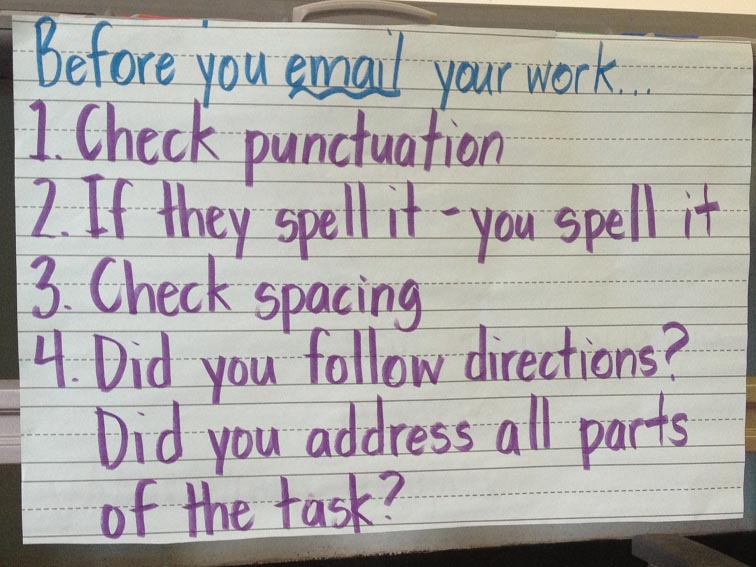 Before you email your work...
1. Check punctuation
2. If they spell it - you spell it
3. Check spacing
4. Did you follow directions?
Did you address all parts
of the task?